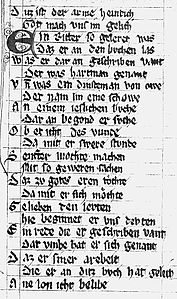 Ditz ist der arme heinrich
Got mach uns im gelich
Ein Ritter so geleret was
Daz er an den buchen las
Waz er dar an geschriben vant
Der was hartman genant
Vnd was ein dinsteman von owe
Der nam im eine schowe
An einem ieslichen buche
Dar an begond er suche
Ob er icht des vunde
Da mit er swere stunde
Senfter mochte machen
Mit so gewern sachen
Daz zv gotes eren tochte
Da mit er sich mochte
Gelieben den leuten
hie beginnet er uns deuten
Ein rede die er geschriben vant
Dar vmbe hat er sich genant
Daz er siner arbeit
Die er an ditz buch hat geleit
Ane lon icht belibe